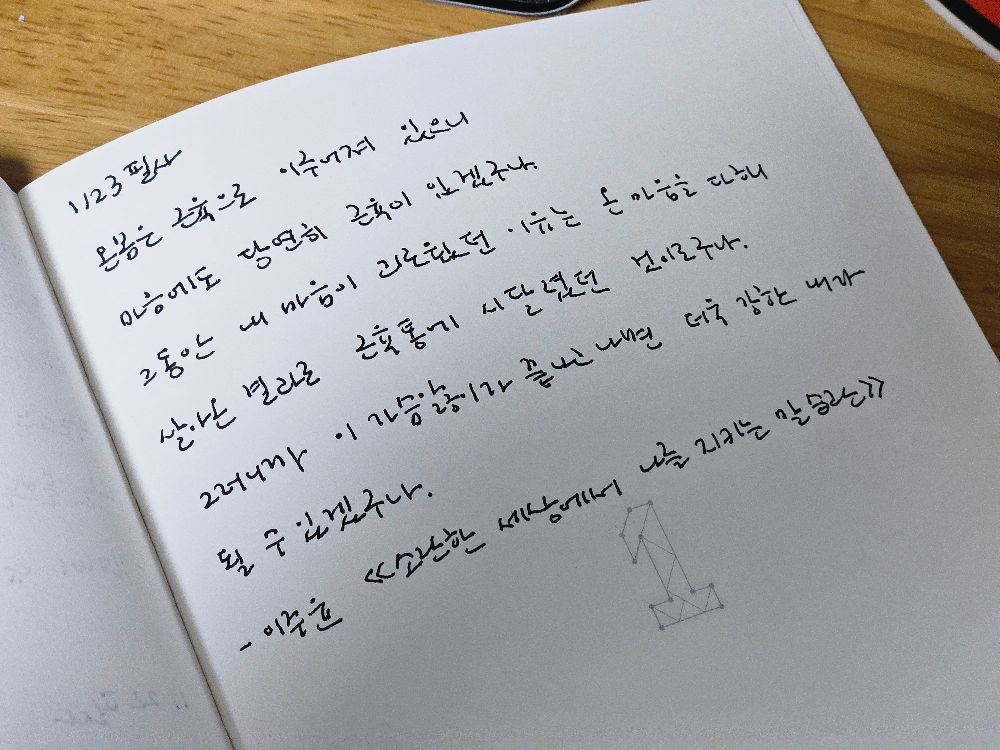 1123 필사
온몸은 근육으로 이루어져 있으니
마음에도 당연히 근육이 있겠구나.
그동안 내 마음이 괴로웠던 이유는 온 마음을 다해
살아온 벌로 근육통에 시달렸던 것이로구나.
그러니까 이 가슴앓이가 끝나고 나면 더욱 강한 내가
될 수 있겠구나.
- 이주윤 <<소란한 세상에서 나를 지키는 말